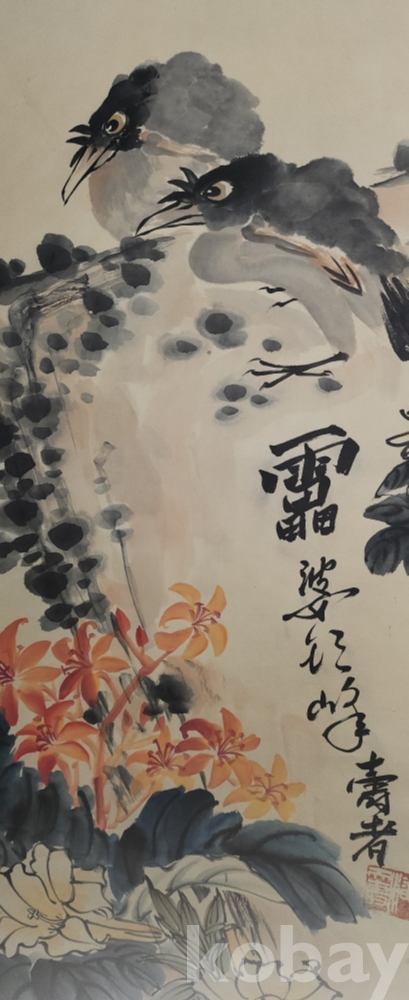 靁婆頭峰壽者
kobay